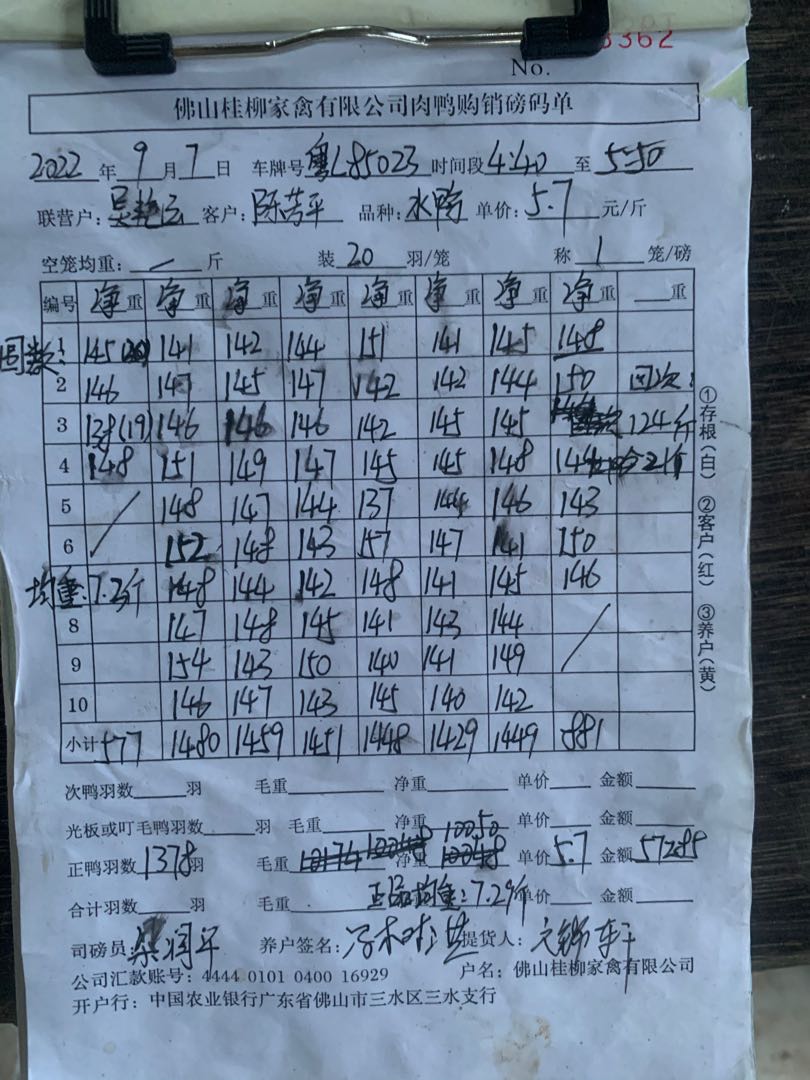 3362
No.
佛山桂柳家禽有限公司肉鸭购销磅码单
2022 年 9 月 7 日 车牌号 粤L85023 时间段 4:40 至 5:50
联营户: 客户: 陈芳平 品种: 水鸭 单价: 5.7 元/斤
空笼均重: / 斤 装 20 羽/笼 称 1 笼/磅
编号 净重 净重 净重 净重 净重 净重 净重 净重 重
1 145(20) 141 142 144 151 141 145 148
2 146 147 145 147 142 142 144 150 回次:
3 138(19) 146 146 146 142 145 145 124斤
4 148 151 149 147 145 145 148 144
5 / 148 147 144 137 144 146 143
6 152 148 143 157 147 141 150
均重:7.2斤 148 144 142 148 141 145 146
8 147 148 145 141 143 144 /
9 154 143 150 140 141 149
10 146 147 143 145 140 142
小计 577 1480 1459 1451 1448 1429 1449 881
①存根(白) ②客户(红) ③养户(黄)
次鸭羽数 羽 毛重 净重 单价 金额
光板或叮毛鸭羽数 羽 毛重 净重 10050 单价 金额
正鸭羽数 1378 羽 毛重 10174 10048 净重 10048 单价 5.7 金额 57285
合计羽数 羽 毛重 正品均重:7.29斤 单价 金额
司磅员 养户签名: 提货人:
公司汇款账号: 4444 0101 0400 16929 户名: 佛山桂柳家禽有限公司
开户行: 中国农业银行广东省佛山市三水区三水支行